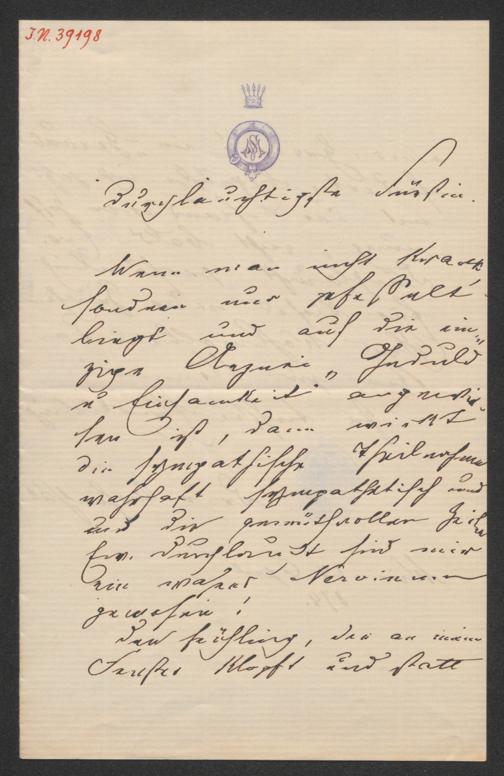 I.N. 39198
Durchlauchtigste Fürstin.
Wenn man nicht krank
sondern nur gefesselt
liegt und auf die ein„
zige Arznei „Geduld
u Einsamkeit" angewie„
sen ist, dann wirkt
die sympathische Theilnahme
wahrhaft sympathetisch und
und die gemüthvollen Zeilen
Ew. Durchlaucht sind mir
ein wahres
gewesen!
Der Frühling, der an mein
Fenster klopft und statt